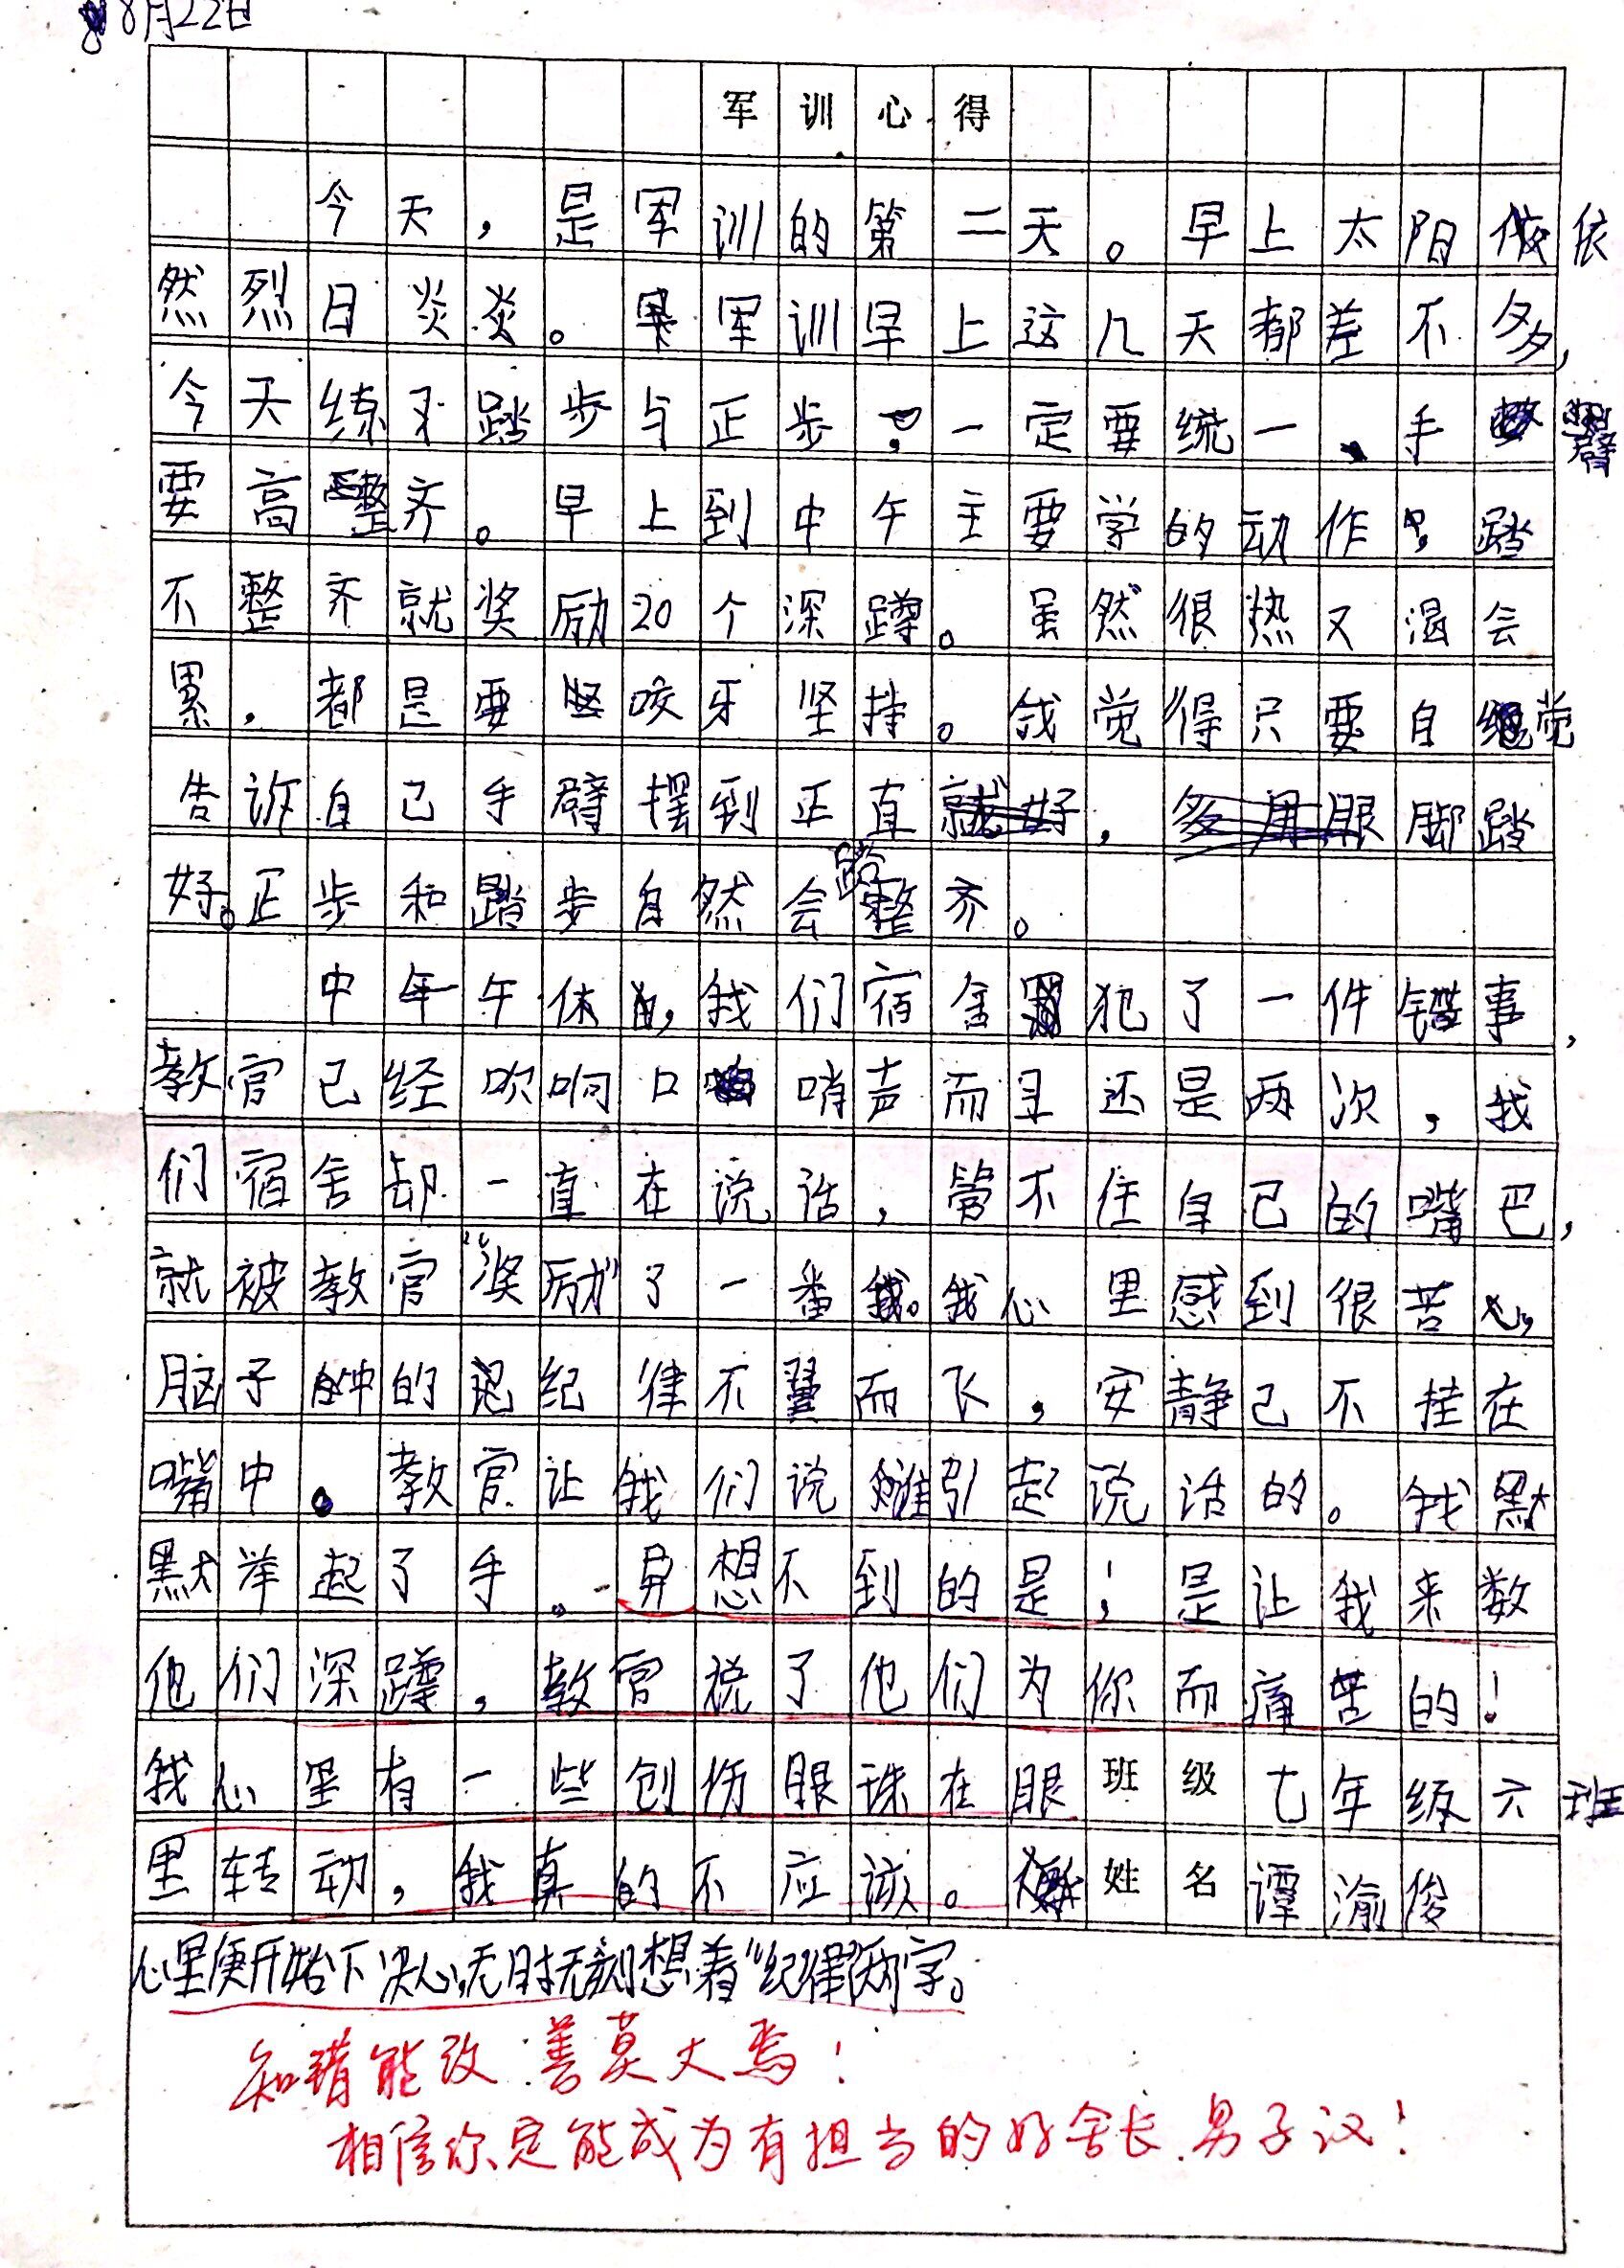 8月22日
军训心得
今天，是军训的第二天。早上太阳依
然烈日炎炎。军训早上这几天都差不多，
今天练习踏步与正步，一定要统一、手臂
要高整齐。早上到中午主要学的动作，踏
不整齐就奖励20个深蹲。虽然很热又渴会
累，都是要咬牙坚持。我觉得只要自觉
告诉自己手臂摆到正直，脚踏
好。正步和踏步自然会踏整齐。
中午午休，我们宿舍犯了一件错事，
教官已经吹响口哨声而且还是两次，我
们宿舍却一直在说话，管不住自己的嘴巴，
就被教官“奖励”了一番。我心里感到很苦心，
脑子中的纪律不翼而飞，安静已不挂在
嘴中。教官让我们说谁引起说话的。我默
默举起了手。异想不到的是；是让我来数
他们深蹲，教官说了他们为你而痛苦的！
我心里有一些创伤眼珠在眼
班级 七年级六班
里转动，我真的不应该。
姓名 谭渝俊
心里便开始下决心，无时无刻想着“纪律”两字。
知错能改 善莫大焉！
相信你定能成为有担当的好舍长、男子汉！